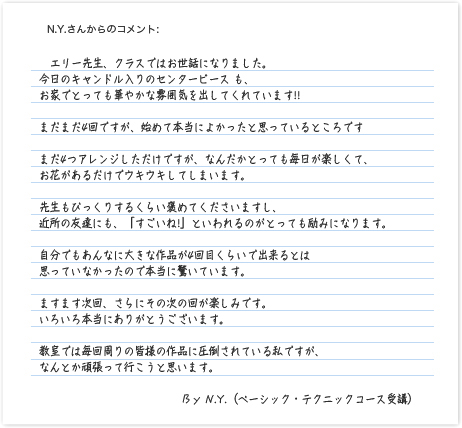 N.Y.さんからのコメント:
エリー先生、クラスではお世話になりました。
今日のキャンドル入りのセンターピース も、
お家でとっても華やかな雰囲気を出してくれています!!
まだまだ4回ですが、始めて本当によかったと思っているところです
まだ4つアレンジしただけですが、なんだかとっても毎日が楽しくて、
お花があるだけでウキウキしてしまいます。
先生もびっくりするくらい褒めてくださいますし、
近所の友達にも、「すごいね!」といわれるのがとっても励みになります。
自分でもあんなに大きな作品が4回目くらいで出来るとは
思っていなかったので本当に驚いています。
ますます次回、さらにその次の回が楽しみです。
いろいろ本当にありがとうございます。
教室では毎回周りの皆様の作品に圧倒されている私ですが、
なんとか頑張って行こうと思います。
By N.Y. (ベーシック・テクニックコース受講)